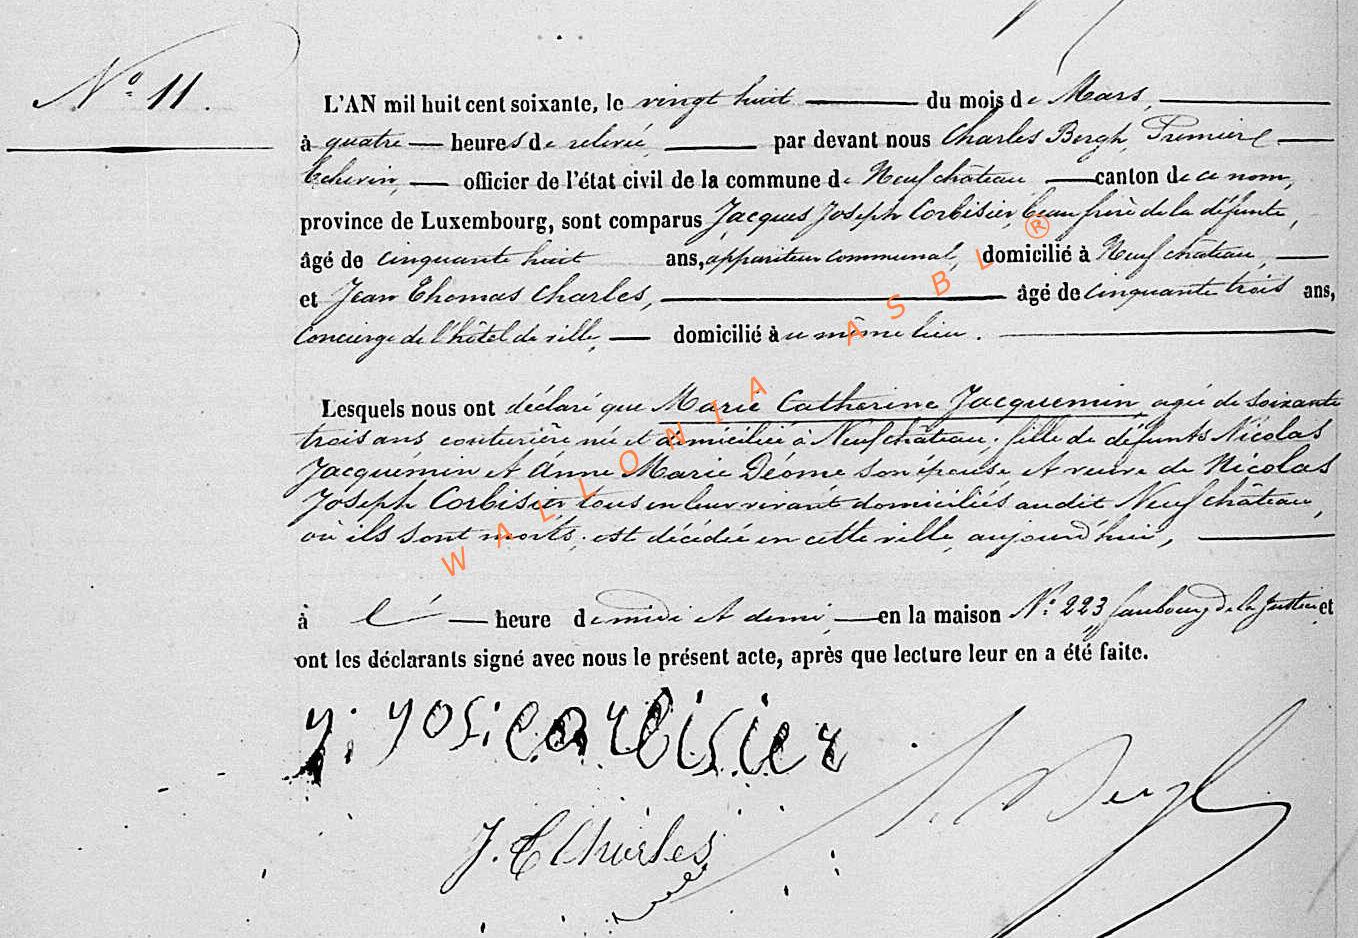 N° 11.
L'AN mil huit cent soixante, le vingt huit du mois de Mars,
à quatre heures de relevée, par devant nous Charles Bergh, Premier
Echevin, officier de l'état civil de la commune de Neufchâteau canton de ce nom,
province de Luxembourg, sont comparus Jacques Joseph Corbisier, beau frère de la défunte,
âgé de cinquante huit ans, appariteur communal, domicilié à Neufchâteau,
et Jean Thomas Charles, âgé de cinquante trois ans,
Concierge de l'hôtel de ville, domicilié au même lieu.
Lesquels nous ont déclaré que Marie Catherine Jacquemin agée de soixante
trois ans couturière née et domiciliée à Neufchâteau, fille de défunts Nicolas
Jacquemin et Anne Marie Déome son épouse et veuve de Nicolas
Joseph Corbisier tous en leur vivant domiciliés audit Neufchâteau,
où ils sont morts, est décédée en cette ville, aujourd'hui,
à l' heure de midi et demi, en la maison N° 223 faubourg de la Justice et
ont les déclarants signé avec nous le présent acte, après que lecture leur en a été faite.
J. Jos. Corbisier
J. T Charles
Bergh
WALLONIA ASBL ®